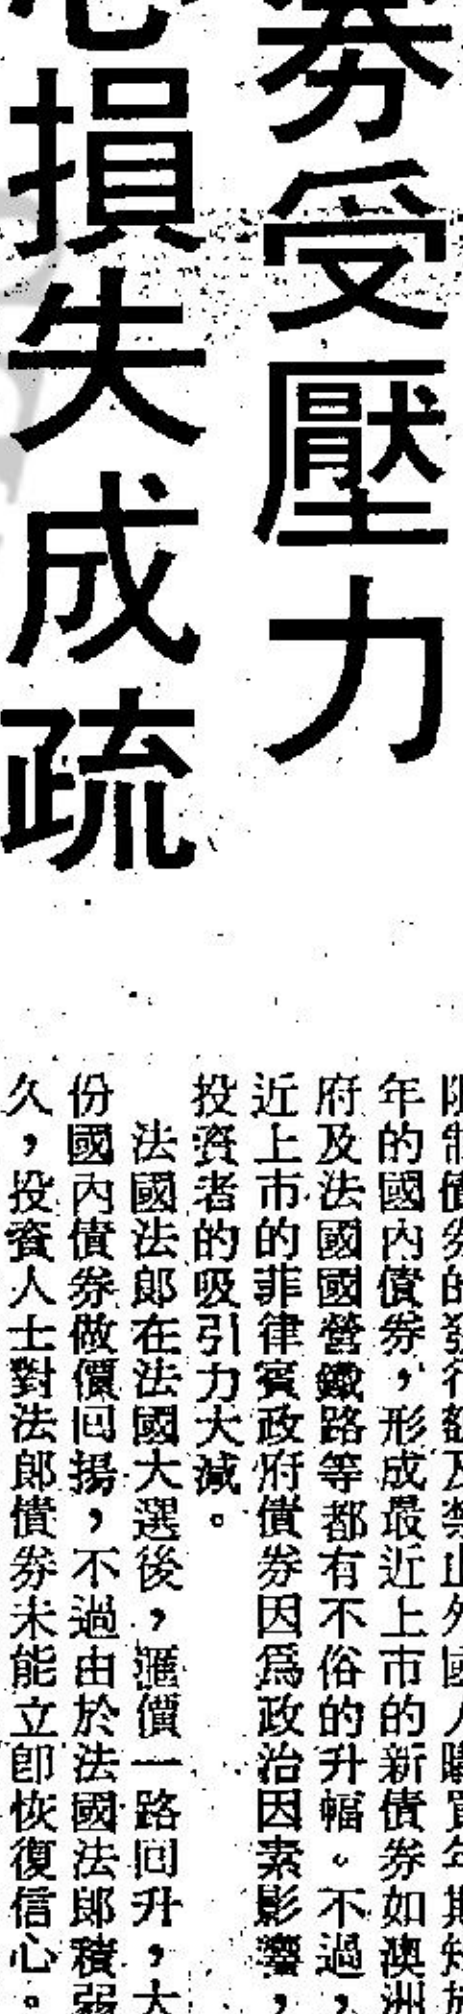 券受壓力
心損失成疏
限制債券的發行額及禁止外國人購買年期短於
年的國內債券，形成最近上市的新債券如澳洲
府及法國國營鐵路等都有不俗的升幅。不過，
近上市的菲律賓政府債券因爲政治因素影響，
投資者的吸引力大減。
法國法郎在法國大選後，滙價一路回升，大
份國內債券做價回揚，不過由於法國法郎積弱
久，投資人士對法郎債券未能立卽恢復信心。